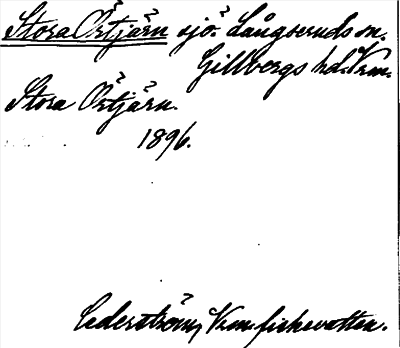 Stora Örtjärn sjö. Långseruds sn.
Gillbergs hd. Vrm.
Stora Örtjärn.
1896.
Cederström, Vrm. fiskevatten.